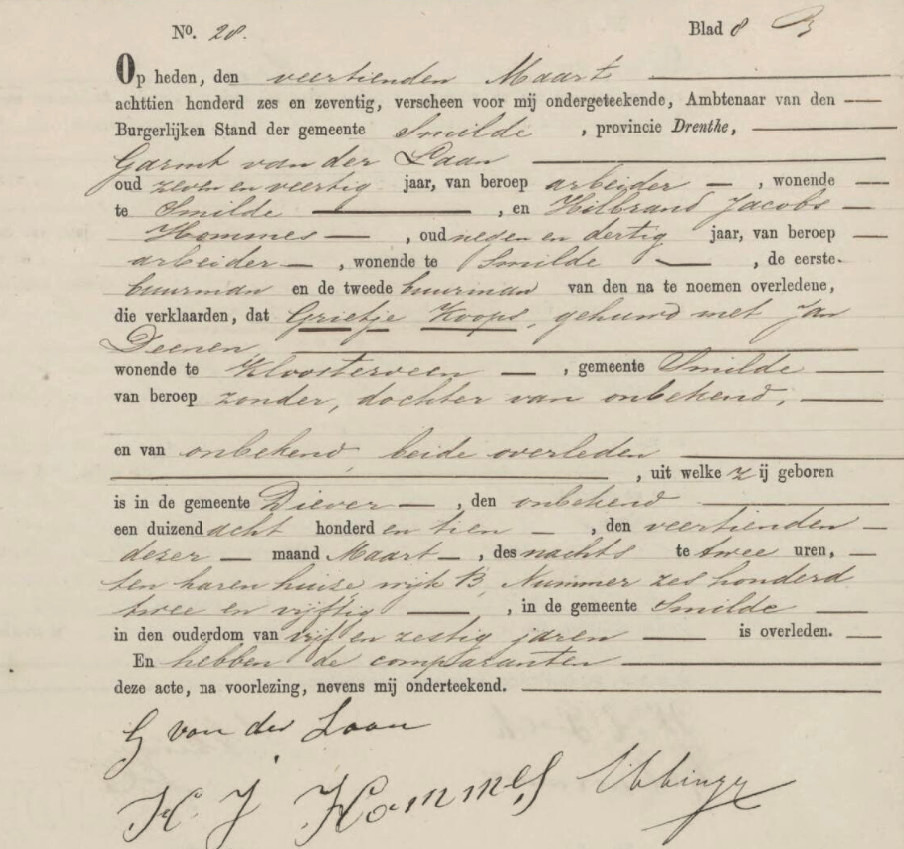 No. 28. Blad 8
Op heden, den veertienden Maart
achttien honderd zes en zeventig, verscheen voor mij ondergeteekende, Ambtenaar van den
Burgerlijken Stand der gemeente Smilde, provincie Drenthe,
Garmt van der Laan
oud zeven en veertig jaar, van beroep arbeider, wonende
te Smilde, en Hilbrand Jacobs
Hommes, oud negen en dertig jaar, van beroep
arbeider, wonende te Smilde, de eerste
buurman en de tweede buurman van den na te noemen overledene,
die verklaarden, dat Grietje Koops, gehuwd met Jan
Deenen
wonende te Kloosterveen, gemeente Smilde
van beroep zonder, dochter van onbekend,
en van onbekend, beide overleden
, uit welke zij geboren
is in de gemeente Diever, den onbekend
een duizend acht honderd en tien, den veertienden
dezer maand Maart, des nachts te twee uren,
ten haren huize, wijk B, Nummer zes honderd
twee en vijftig, in de gemeente Smilde
in den ouderdom van vijf en zestig jaren is overleden.
En hebben de comparanten
deze acte, na voorlezing, nevens mij onderteekend.
G van der Laan
H J Hommes